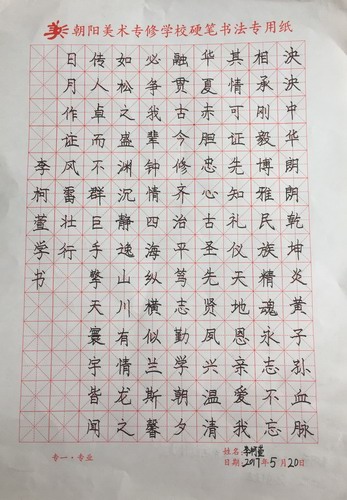 朝阳美术专修学校硬笔书法专用纸
泱泱中华朗朗乾坤炎黄子孙血脉
相承刚毅博雅民族精魂永志不忘
其情可证先知礼仪天地恩亲爱我
华夏赤胆忠心古圣先贤凤兴温清
融贯古今修齐治平笃志勤学朝夕
必争我辈钟情四海纵横似兰斯馨
如松之盛渊沉静逸山川有情龙之
传人卓而不群巨手擎天寰宇皆闻
日月作证风雷壮行
李柯萱学书
专一·专业
姓名:李柯萱
日期:2017年5月20日